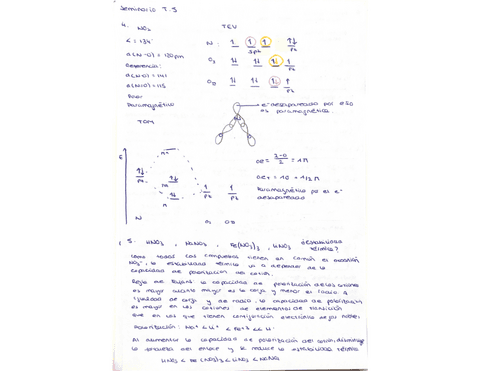 Seminario T.5
4. NO₂ TEV
∠ = 134°
d(N-O) = 120pm
Referencias:
d(N-O) = 141
d(N=O) = 115
Polar
Paramagnético
N: sp² pz
O₁ pz
O₂ pz
e⁻ desapareado por eso es paramagnético.
TOM
E
pz
pz pz
N O₁ O₂
OE = = 1 π
OE_T = 1σ + 1/2 π
Paramagnético por el e⁻ desapareado
5. HNO₃, NaNO₃, Fe(NO₃)₃, LiNO₃ estabilidad térmica?
Como todos los compuestos tienen en común el oxoanión
NO₃⁻, la estabilidad térmica va a depender de la
capacidad de polarización del catión.
Regla de Fajans: la capacidad de polarización de los cationes
es mayor cuanto mayor es la carga y menor es el radio. A
igualdad de carga y de radio, la capacidad de polarización
es mayor en los cationes de elementos de transición
que en los que tienen configuración electrónica de gas noble.
Polarización: Na⁺ < Li⁺ < Fe³⁺ << H⁺
Al aumentar la capacidad de polarización del catión, disminuye
la fuerza del enlace y se reduce la estabilidad térmica
HNO₃ < Fe(NO₃)₃ < LiNO₃ < NaNO₃